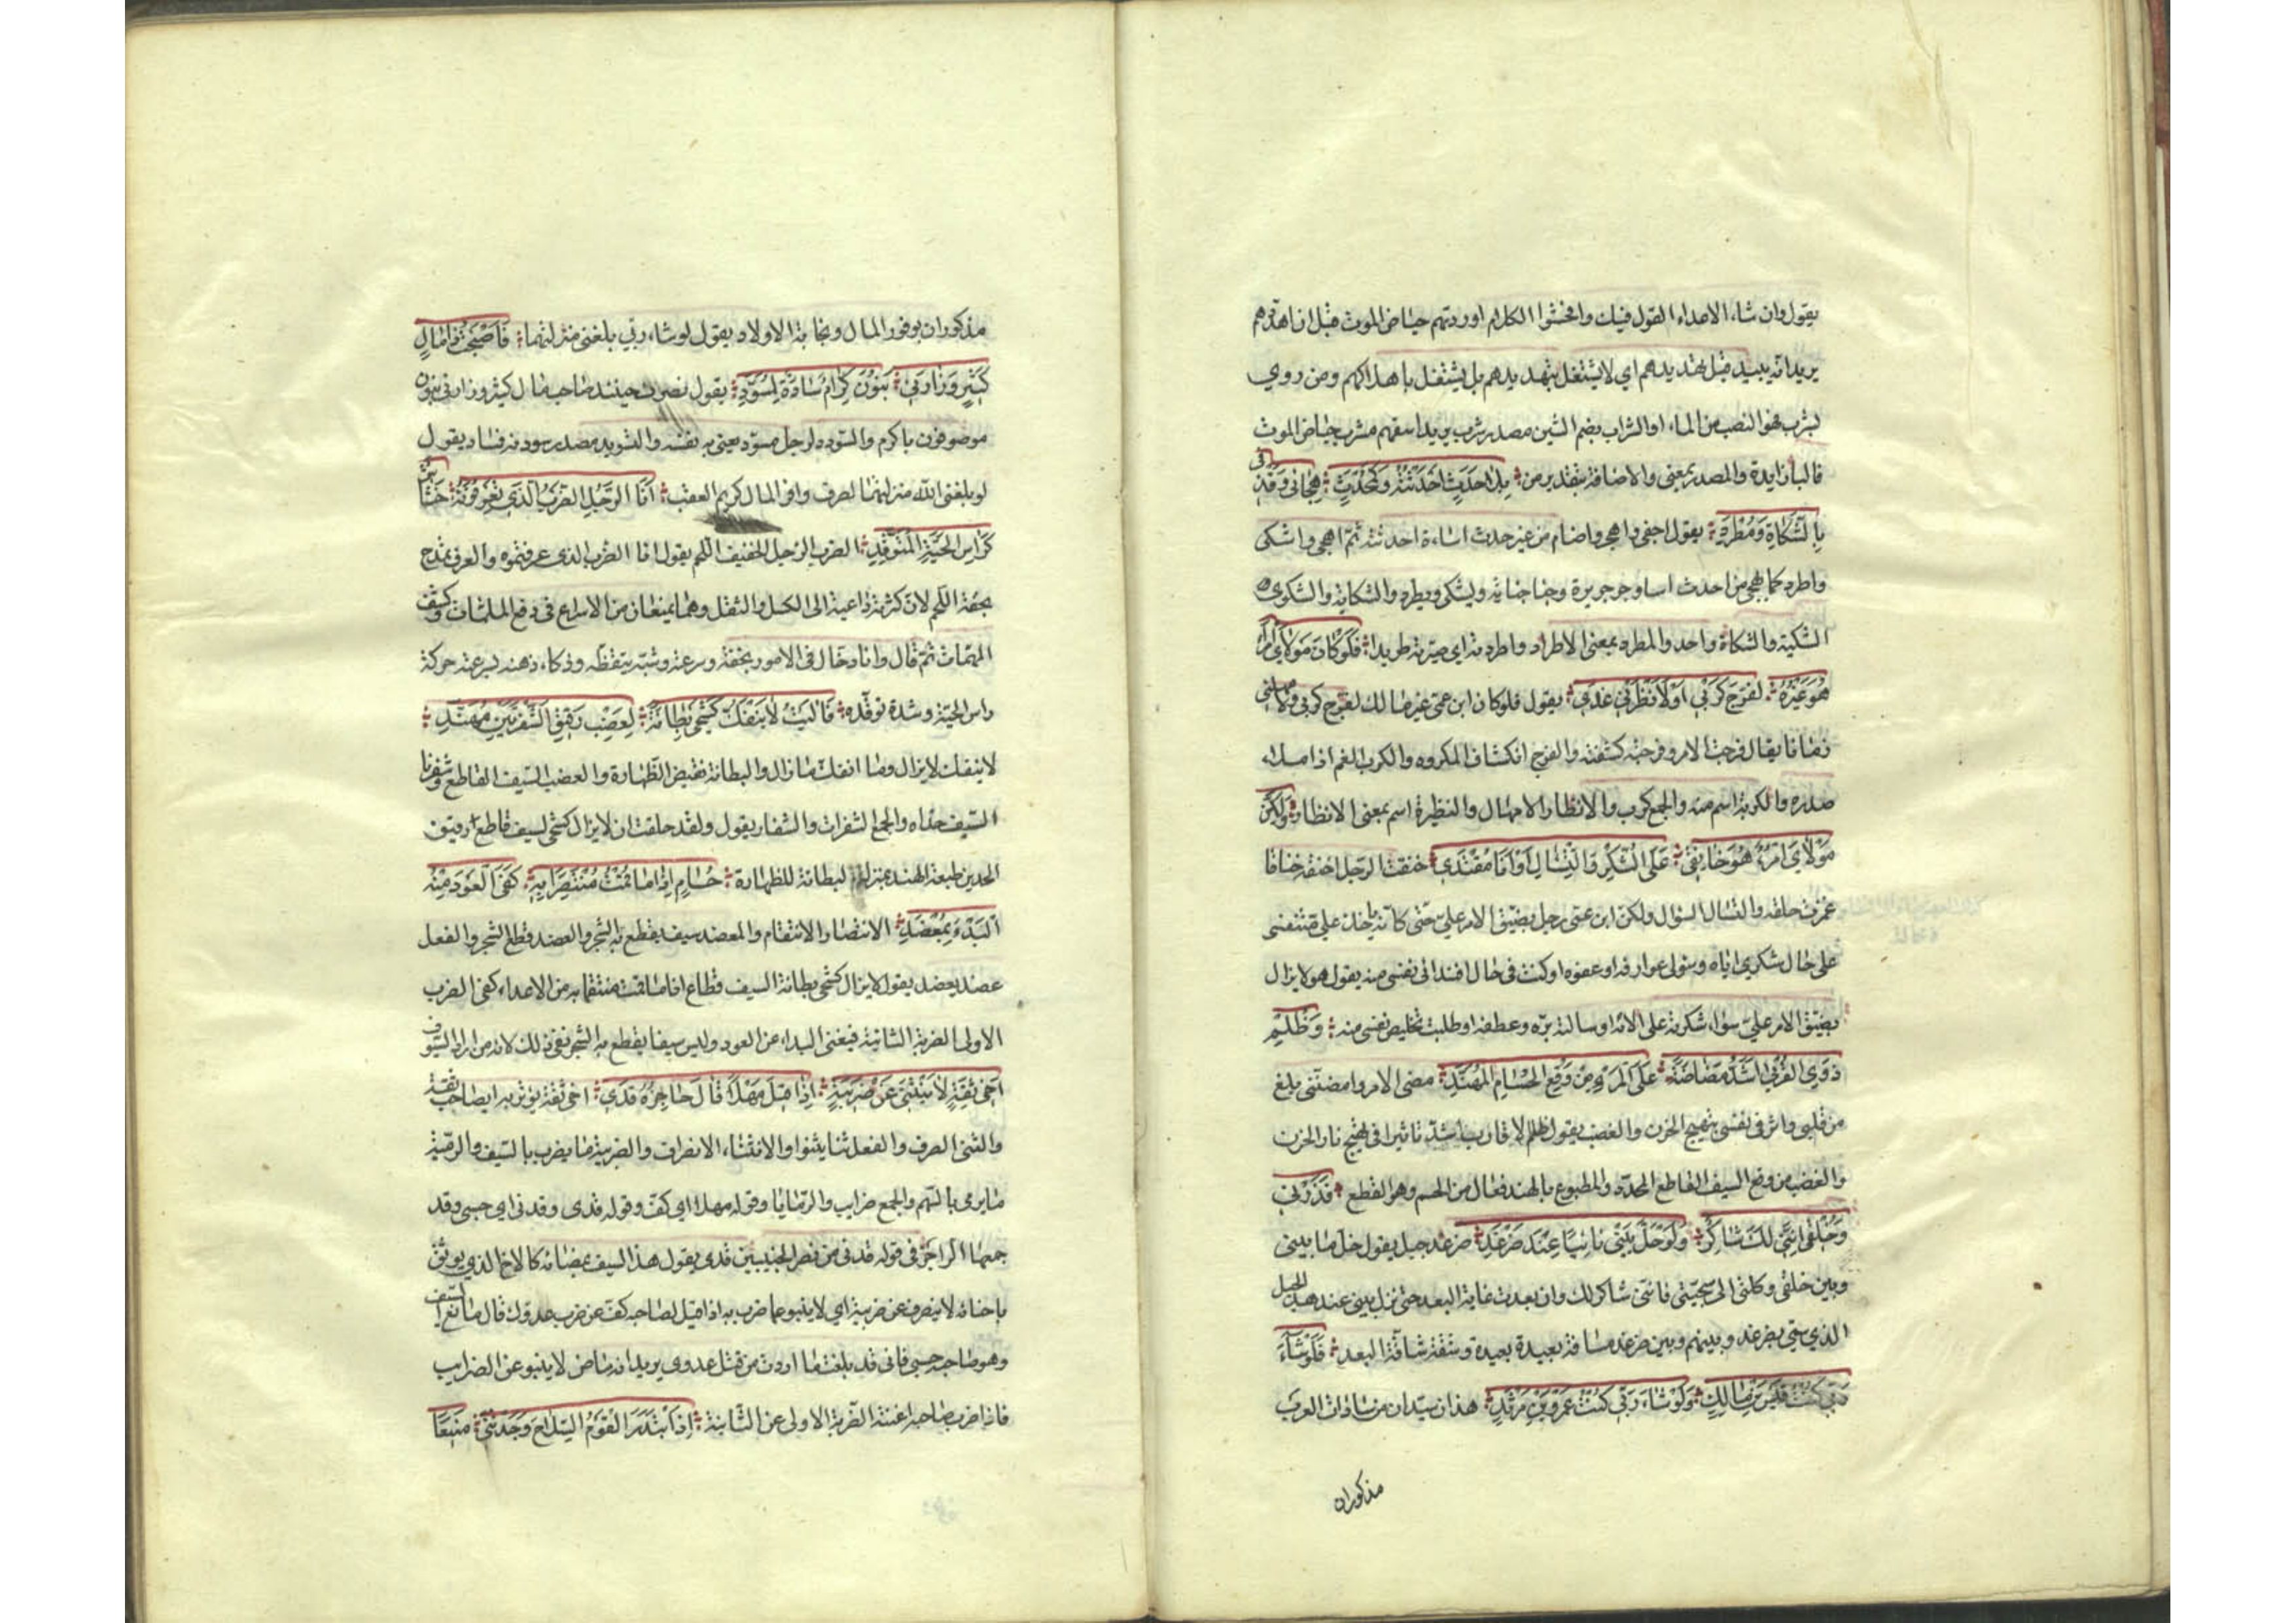 يقول وان شاء الاعداء القول فيك وافحشوا الكلام اوردتهم حياض الموت قبل ان اهددهم
يريد انه يبيد قبل تهديدهم اي لا يشتغل بتهديدهم بل يشتغل باهلاكهم ومن روي
بشرب فهو النصب من الماء او الشراب بضم الشين مصدر شرب يريد اسقهم شرب حياض الموت
فالباء زايدة والمصدر بمعنى والاضافة بتقدير من بِلا حَدَثٍ اَحْدَثْتُهُ وَكَمُحْدَثٍ هِجائى وَقَذفى
بِالشَّكاةِ وَمُطْرَدى يقول اجفى واهجى واضام من غير حدث اساءة احدثته ثم اهجى واشكى
واطرد كما يهجى من احدث اساءة وجر جريرة وجنا جناية ويشكى ويطرد والشكاية والشكوى
الشكية والشكاة واحد والمطرد بمعنى الاطراد واطردته اي صيرته طريدا فَلَوْ كانَ مَوْلايَ امْرَأً
هُوَ غَيْرُهُ لَفَرَّجَ كَرْبي اَوْ لَأَنْظَرَني غَدي يقول فلو كان ابن عمى غير مالك لفرج كربى ولأمهلنى
زمانا يقال فرجت الامر وفرجته كشفته والفرج انكشاف المكروه والكرب الغم اذا ملأ
صدره والكربة اسم منه والجمع كرب والانظار الامهال والنظرة اسم بمعنى الانظار وَلكِنَّ
مَوْلايَ امْرُؤٌ هُوَ خانِقى عَلَى الشُّكْرِ وَالتَّسْالِ اَوْ اَنَا مُفْتَدي خنقت الرجل اخنقه خنقا
عصرت حلقه والتسال السؤال ولكن ابن عمى رجل يضيق الامر علي حتى كانه ياخذ علي متنفسى
على حال شكري اياه وسؤلى عوارفه وعفوه او كنت فى حال افتدائى نفسى منه يقول هو لا يزال
يضيق الامر علي سواء شكرته على الائه او سالته بره وعطفه او طلبت تخليص نفسى منه وَظُلْمُ
ذَوِي القُرْبى اَشَدُّ مَضاضَةً عَلَى المَرْءِ مِنْ وَقْعِ الحُسامِ المُهَنَّدِ مضنى الامر وامضنى بلغ
من قلبى واثر فى نفسى تهييج الحزن والغضب يقول ظلم الاقارب اشد تاثيرا فى تهييج نار الحزن
والغضب من وقع السيف القاطع المحدد والمطبوع بالهند فعال من الحسم وهو القطع فَذَرْنى
وَخُلْقى اِنَّنى لَكَ شاكِرٌ وَلَوْ حَلَّ بَيْتى نائِيًا عِنْدَ ضَرْغَدِ ضرغد جبل يقول خل ما بينى
وبين خلقى وكلنى الى سجيتى فاننى شاكر لك وان بعدت غاية البعد حتى ينزل بيتى عند هذا الجبل
الذي سمى بضرغد وبينهم وبين ضرغد مسافة بعيدة بعيدة وشقة شاقة البعد فَلَوْ شاءَ
رَبّى كُنْتُ قَيْسَ بْنَ خالِدٍ وَلَوْ شاءَ رَبّى كُنْتُ عَمْرَو بْنَ مَرْثَدِ هذان سيدان من سادات العرب
مذكوران
مذكوران بوفور المال ونجابة الاولاد يقول لو شاء ربي بلغنى منزلتهما فَاَصْبَحْتُ ذا مالٍ
كَثيرٍ وَزارَنى بَنُونَ كِرامٌ سادَةٌ لِمُسَوَّدِ يقول فصرت حينئذ صاحب مال كثير وزارنى بنون
موصوفون بالكرم والسودد لرجل مسود يعنى به نفسه والتسويد مصدر سودته فساد يقول
لو بلغنى الله منزلتهما لصرت وافر المال كريم العقب اَنَا الرَّجُلُ الضَّرْبُ الَّذي تَعْرِفُونَهُ خَشاشٌ
كَرَأْسِ الحَيَّةِ المُتَوَقِّدِ الضرب الرجل الخفيف اللحم يقول انا الضرب الذى عرفتموه والعرب تمدح
بخفة اللحم لان كثرته داعية الى الكسل والثقل وهما يمنعان من الاسراع فى دفع الملمات وكشف
المهمات ثم قال وانا دخال فى الامور بخفة وسرعة وشبه تيقظه وذكاء ذهنه بسرعة حركة
راس الحية وشدة توقده فَآلَيْتُ لا يَنْفَكُّ كَشْحى بِطانَةً لِعَضْبٍ رَقيقِ الشَّفْرَتَيْنِ مُهَنَّدِ
لا ينفك لا يزال وما انفك ما زال والبطانة نقيض الظهارة والعضب السيف القاطع وشفرتا
السيف حداه والجمع الشفرات والشفار يقول ولقد حلفت ان لا يزال كشحى لسيف قاطع رقيق
الحدين طبعته الهند بمنزلة البطانة للظهارة حُسامٍ اِذا ما قُمْتُ مُنْتَصِرًا بِهِ كَفَى العَوْدَ مِنْهُ
البَدْءُ لَيْسَ بِمِعْضَدِ الانتصار الانتقام والمعضد سيف يقطع به الشجر والعضد قطع الشجر والفعل
عضد يعضد يقول لا يزال كشحى بطانة السيف قطاع اذا ما قمت منتقما به من الاعداء كفى الضرب
الاولى الضربة الثانية فيغنى البداء عن العود وليس سيفا يقطع به الشجر نفى ذلك لانه من اردا السيوف
اَخى ثِقَةٍ لا يَنْثَنى عَنْ ضَريبَةٍ اِذا قيلَ مَهْلاً قالَ حاجِزُهُ قَدي اخى ثقة يوثق به اي صاحب ثقة
والثنى الصرف والفعل ثنا يثنوا والانثناء الانصراف والضريبة ما يضرب بالسيف والرمية
ما يرمى بالسهم والجمع ضرايب والرمايا وقوله مهلا اي كف وقوله قدى وقدنى اي حسبى وقد
جمعهما الراجز فى قوله قدنى من نصر الخبيبين قدى يقول هذا السيف بمضائه كالاخ الذي يوثق
باخائه لا ينصرف عن ضريبة اي لا ينبو عما ضرب به اذا قيل لصاحبه كف عن ضرب عدوك قال مانع السيف
وهو صاحبه حسبى فانى قد بلغت ما اردت من قتل عدوى يريد انه ماض لا ينبو عن الضرايب
فاذا ضرب صاحبه اغنته الضربة الاولى عن الثانية اِذَا ابْتَدَرَ القَوْمُ السِّلاحَ وَجَدْتَنى مَنيعًا